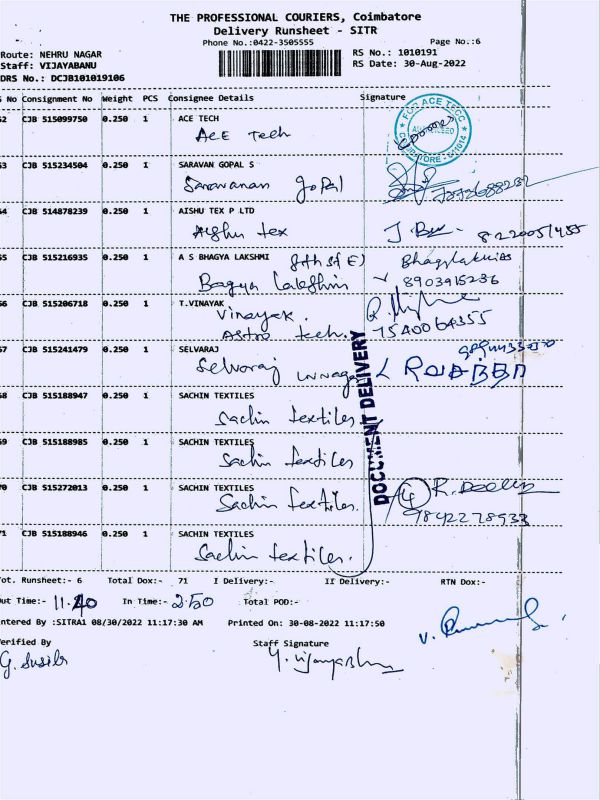 THE PROFESSIONAL COURIERS, Coimbatore
Delivery Runsheet - SITR
Phone No.:0422-3505555 Page No.:6
Route: NEHRU NAGAR RS No.: 1010191
Staff: VIJAYABANU RS Date: 30-Aug-2022
DRS No.: DCJB101019106
S No Consignment No Weight PCS Consignee Details Signature
62 CJB 515099750 0.250 1 ACE TECH
Ace Tech
FOR ACE TECC
COIMBATORE - 641014
63 CJB 515234504 0.250 1 SARAVAN GOPAL S
Saravanan Gopal
64 CJB 514878239 0.250 1 AISHU TEX P LTD
Aishu tex
8220051455
65 CJB 515216935 0.250 1 A S BHAGYA LAKSHMI
Bagya Lakshmi
8903915236
66 CJB 515206718 0.250 1 T.VINAYAK
Vinayak.
Astro tech.
7540064355
67 CJB 515241479 0.250 1 SELVARAJ
Selvaraj
DOCUMENT DELIVERY
68 CJB 515188947 0.250 1 SACHIN TEXTILES
Sachin textiles
69 CJB 515188985 0.250 1 SACHIN TEXTILES
Sachin textiles
70 CJB 515272013 0.250 1 SACHIN TEXTILES
Sachin textiles.
4
9842278933
71 CJB 515188946 0.250 1 SACHIN TEXTILES
Sachin textiles.
Tot. Runsheet:- 6 Total Dox:- 71 I Delivery:- II Delivery:- RTN Dox:-
Out Time:- 11.20 In Time:- 2.50 Total POD:-
Entered By :SITRA1 08/30/2022 11:17:30 AM Printed On: 30-08-2022 11:17:50
Verified By Staff Signature